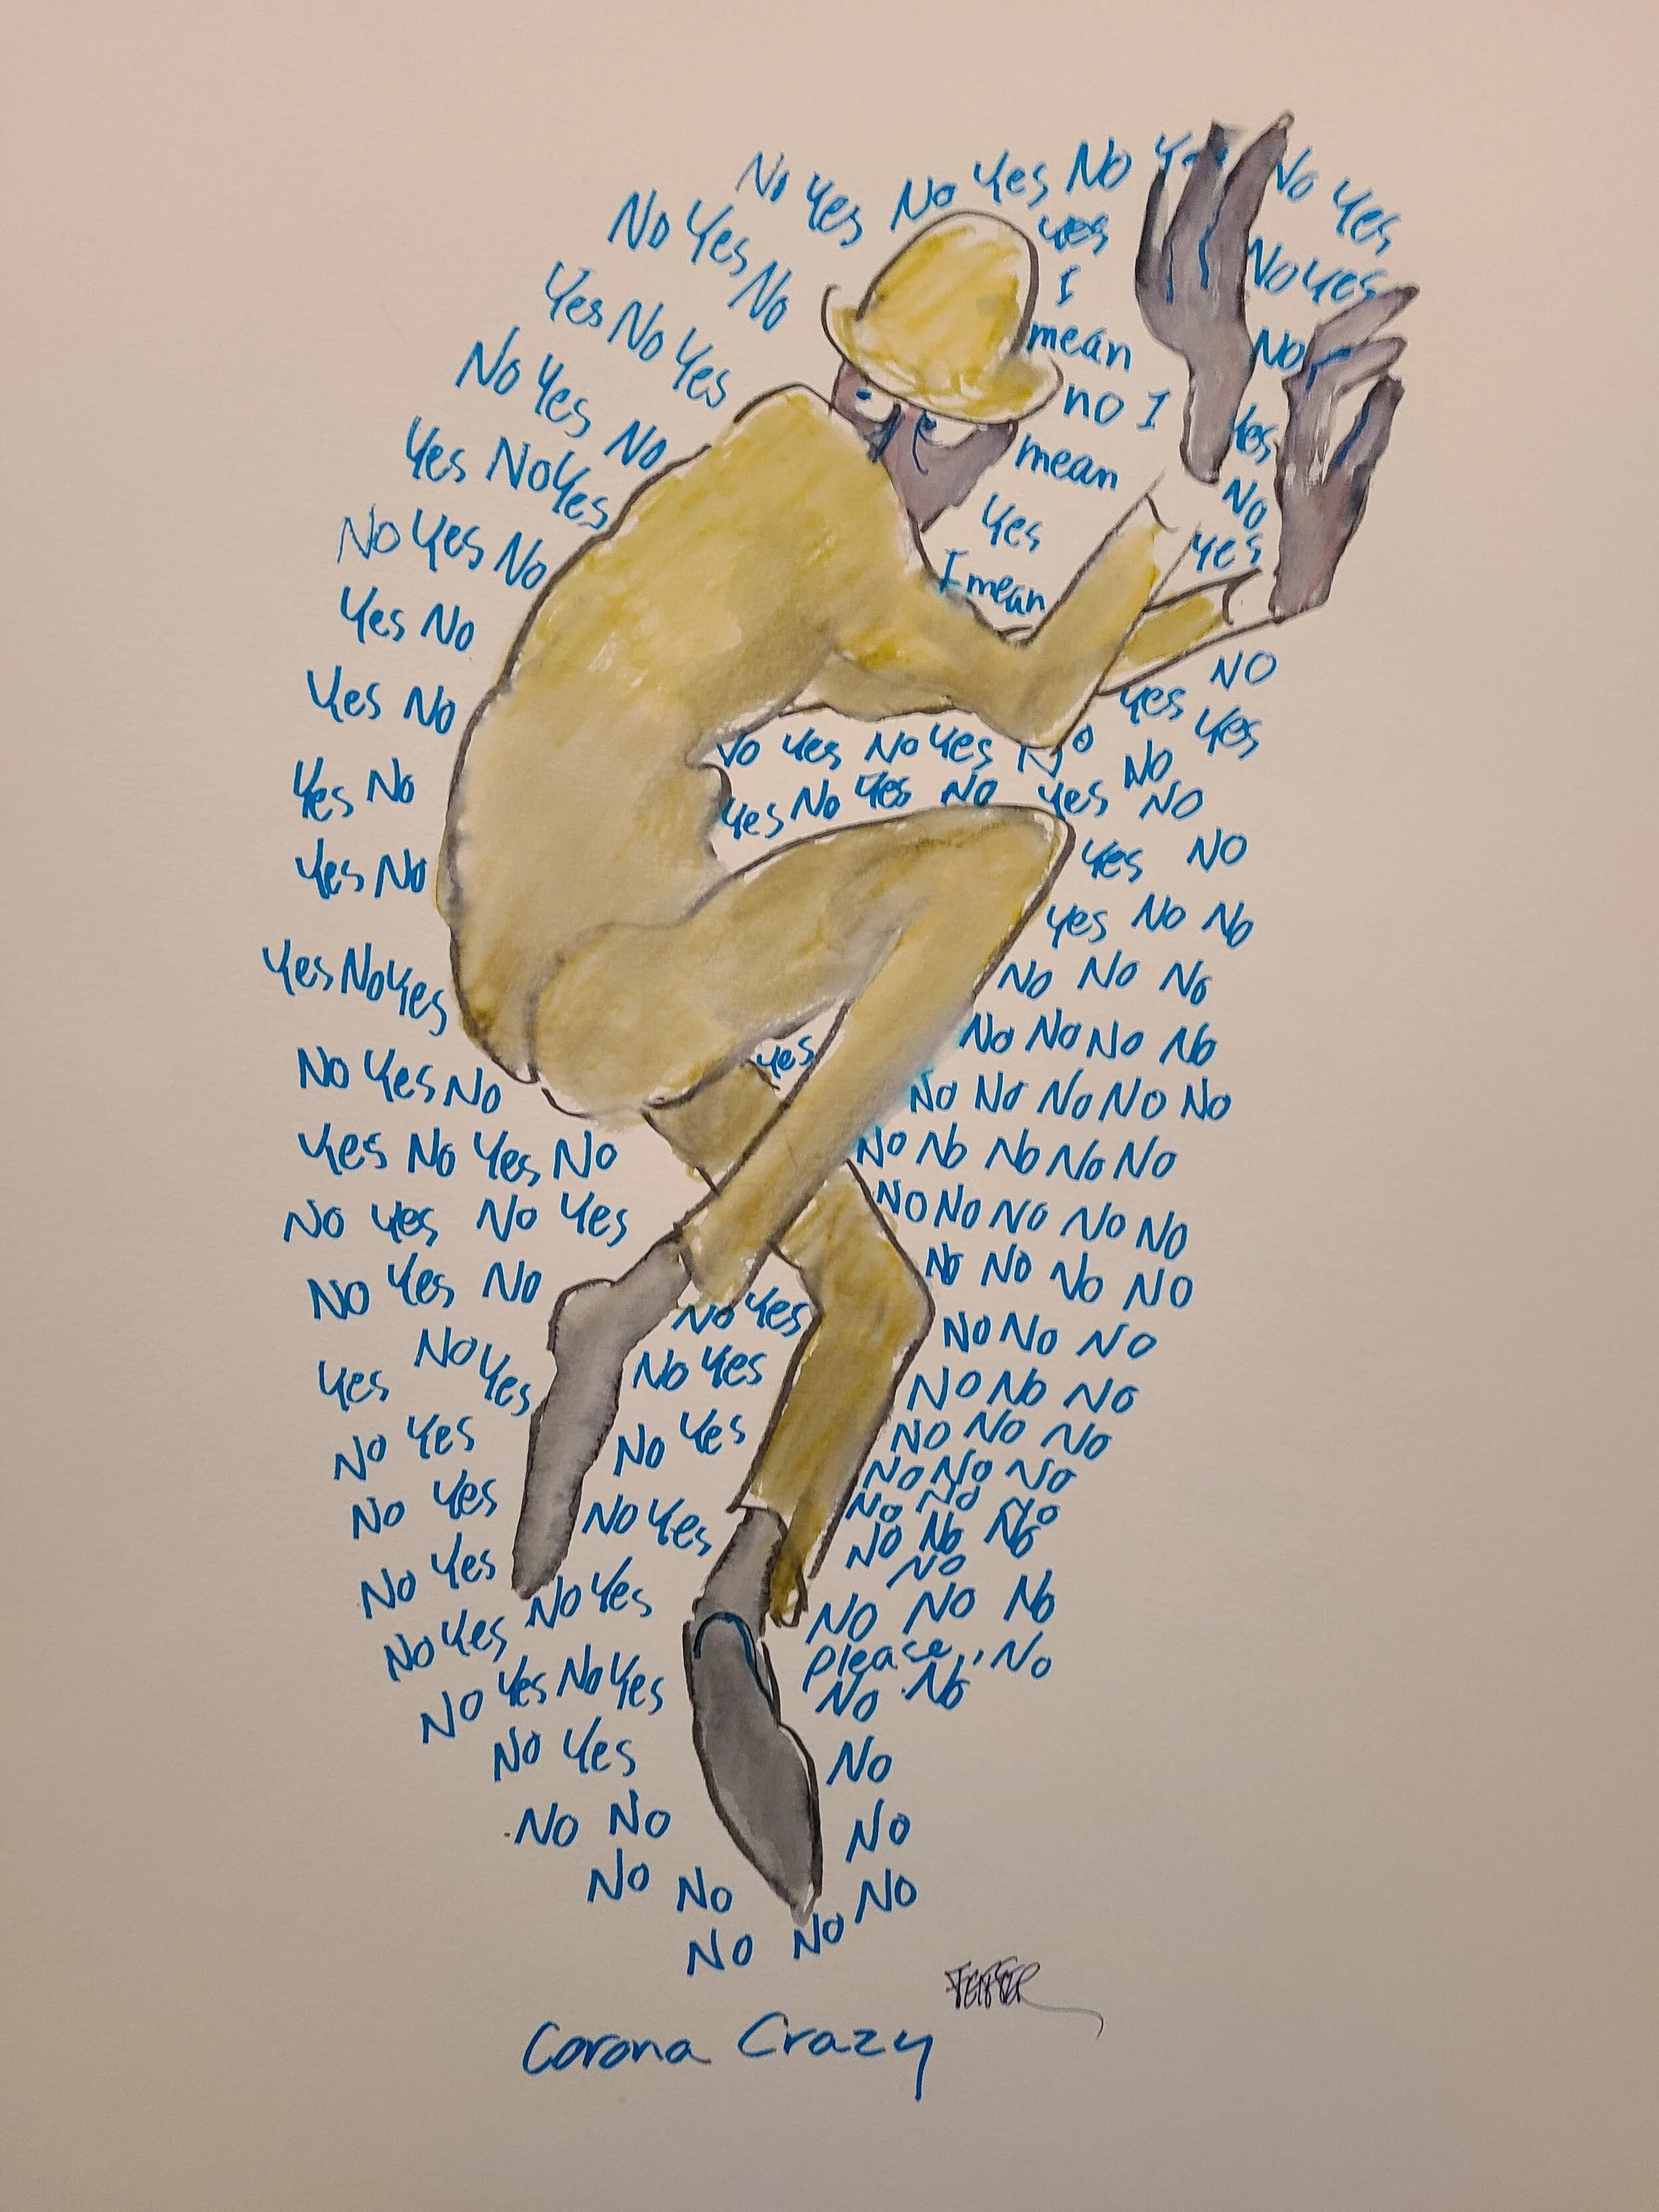 No Yes No Yes No Yes No Yes
No Yes No
yes
I
mean
no I
mean
Yes
I mean
No Yes
No
Yes
No
Yes
Yes No Yes
No Yes No
Yes No Yes
No Yes No
Yes No
Yes No
Yes No
Yes No
Yes No Yes
No Yes No
Yes No Yes No
No Yes No Yes
No Yes No
No Yes
Yes
No Yes
No Yes
No Yes
No Yes
No Yes No Yes
No Yes
No No
No No
No No
NO
Yes Yes
No Yes No Yes No No
Yes No Yes No Yes NO
Yes NO
Yes No No
No No No
No No No No
yes
No No No No No
No No No No No
No No No No No
No No No No
No Yes
No No No
No Yes
No No No
No Yes
No No No
No No No
No Yes
No No No
No No No
No
No Yes
No No No
please, No
No No
No
No
No
Corona Crazy
FEIFFER